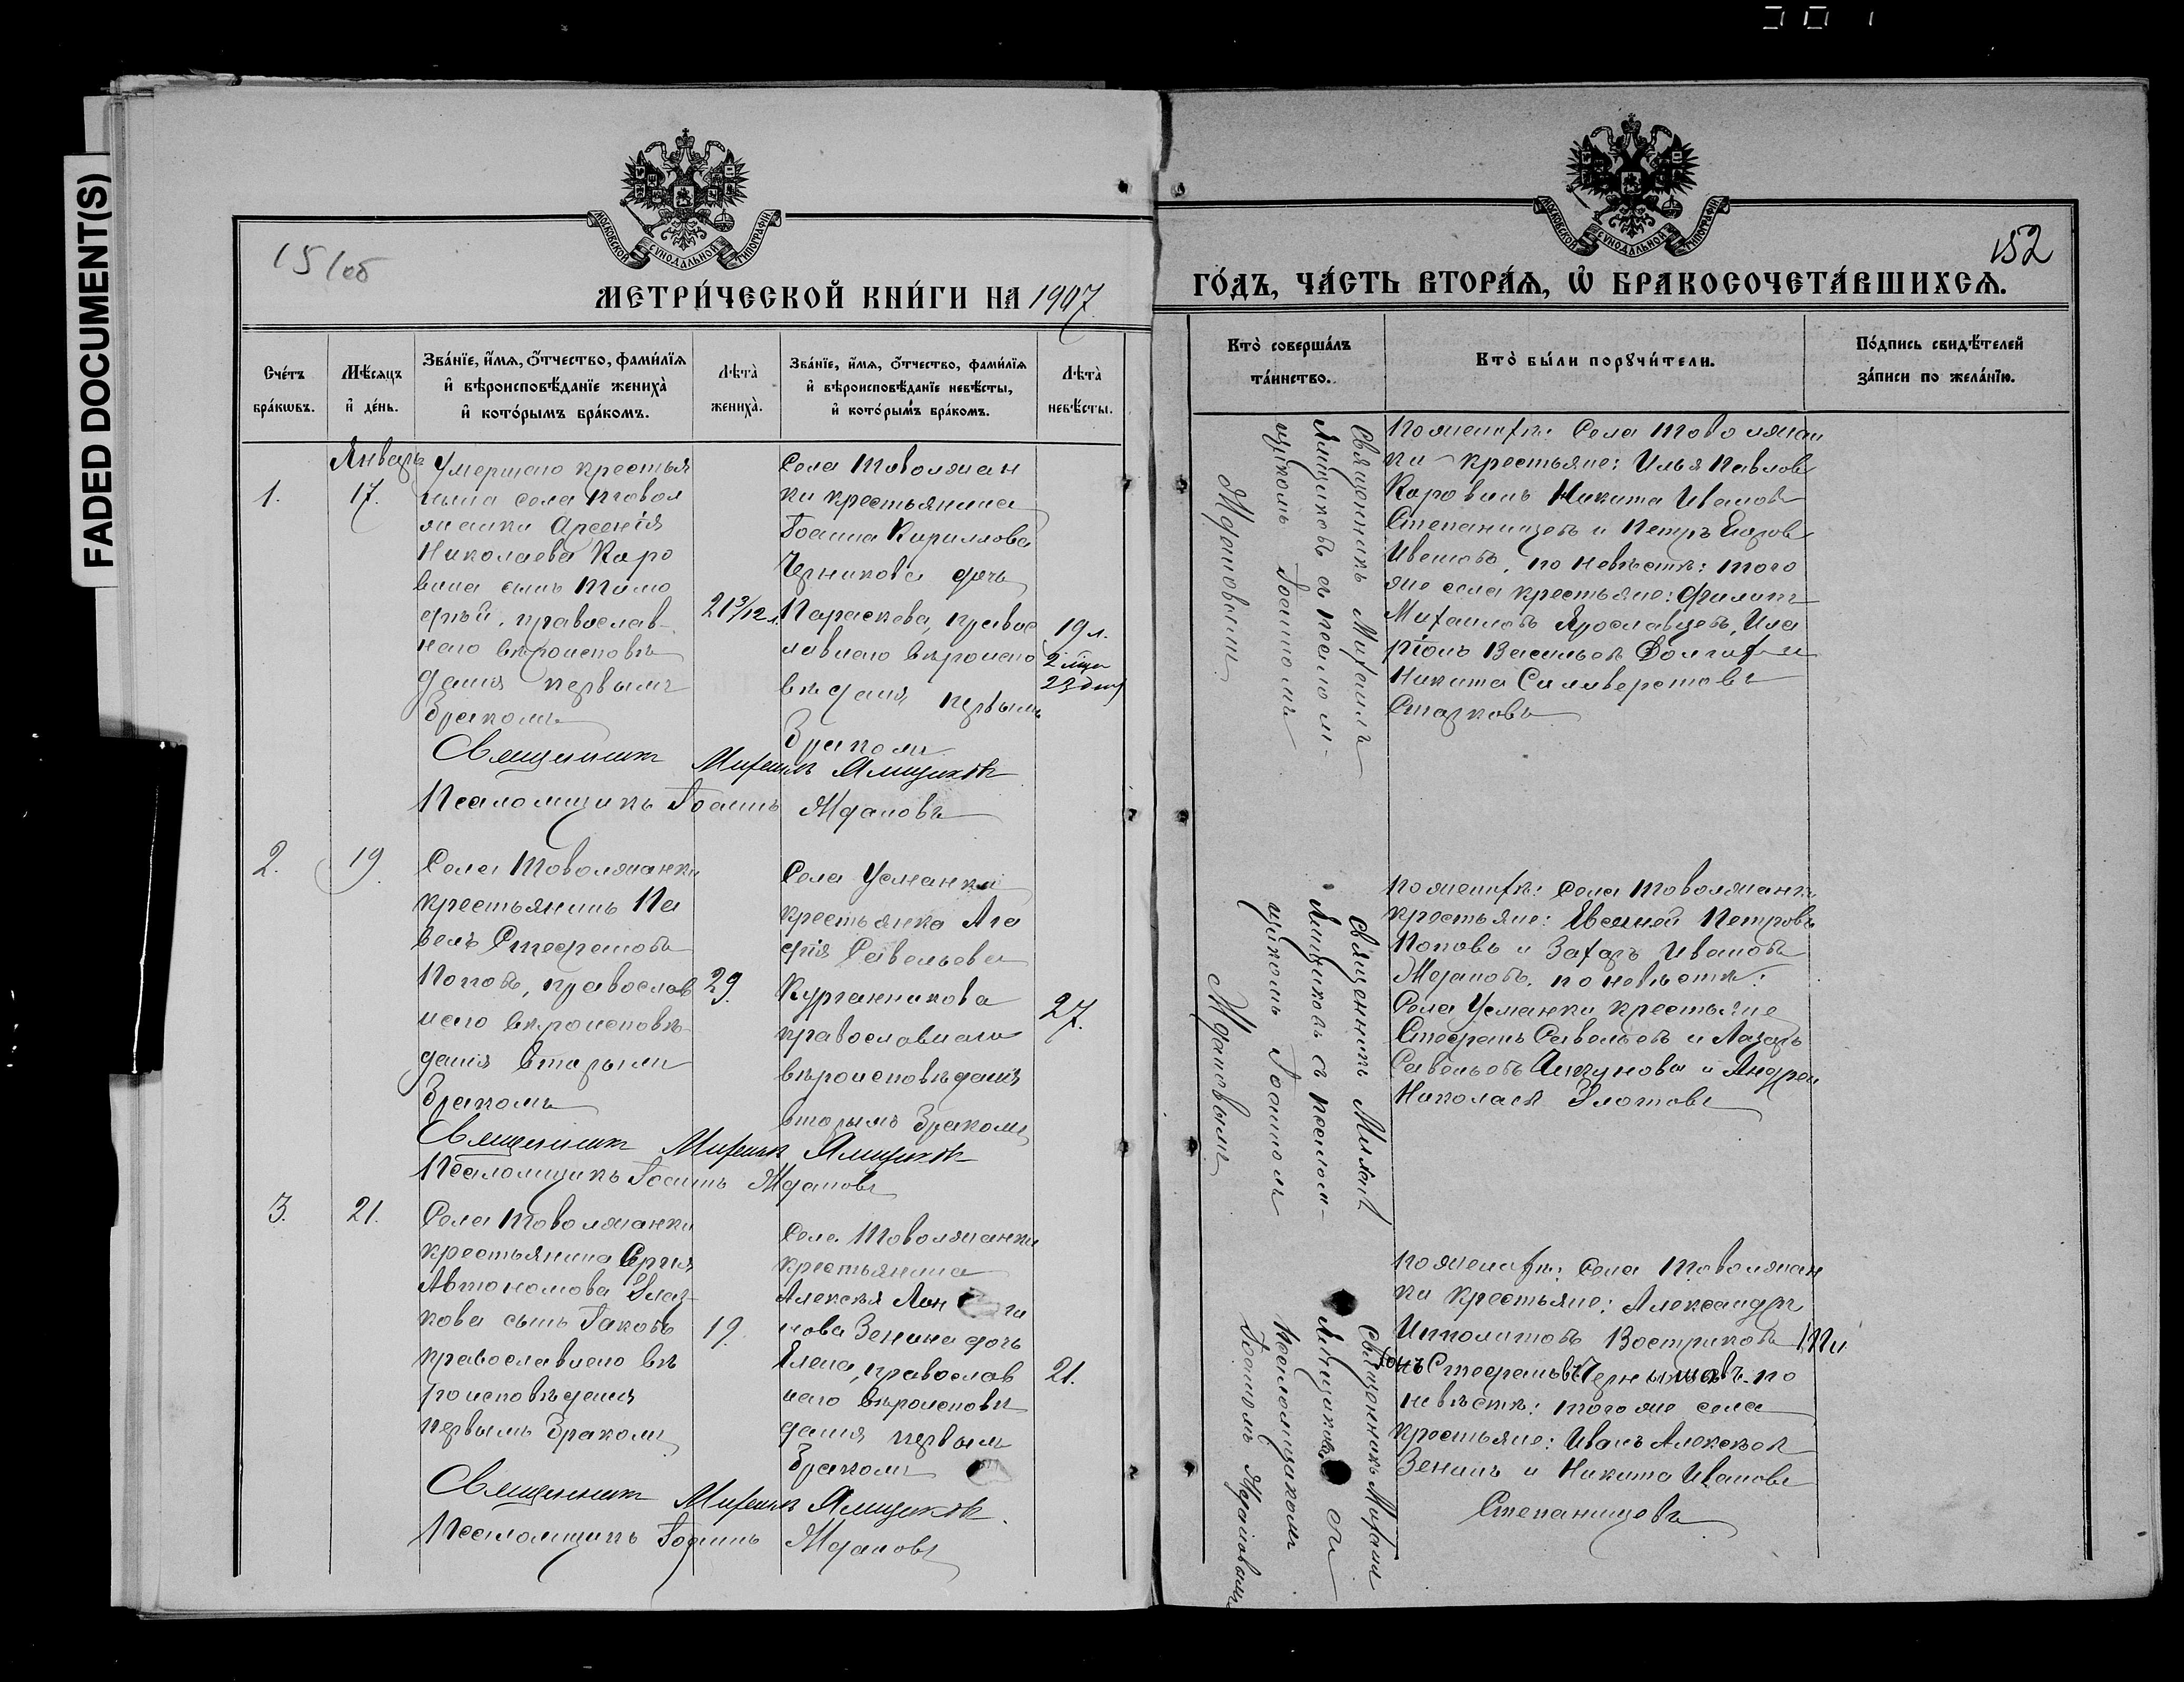 FADED DOCUMENT(S)
151об
МОСКОВСКОЙ СѴНОДАЛЬНОЙ ТИПОГРАФІИ
МЕТРИ́ЧЕСКОЙ КНИ́ГИ НА 1907
Сче́тъ бра́кѡвъ.
Мѣ́сяцъ и҆ де́нь.
Зва́нїе, и҆́мѧ, ѻ҆́тчество, фами́лїѧ и҆ вѣроисповѣ́данїе женихà и҆ кото́рымъ бра́комъ.
Лѣ́та̀ женихà.
Зва́нїе, и҆́мѧ, ѻ҆́тчество, фами́лїѧ и҆ вѣроисповѣ́данїе невѣ́сты, и҆ кото́рымъ бра́комъ.
Лѣ́та̀ невѣ́сты.
Январь
1.
17.
Умершаго крестья
нина села Товол
жанки Арсенія
Николаева Каро
вина сынъ Тимо
фей, православ-
наго вѣроисповѣ
данія первымъ
бракомъ
21 3/12 л.
Села Товолжан
ки крестьянина
Іоанна Кириллова
Черникова дочь
Параскева, правос
лавнаго вѣроиспо
вѣданія первымъ
бракомъ
19 л.
2 мѣц
23 дня
Священникъ Михаилъ Ямщиковъ
Псаломщикъ Іоаннъ Ждановъ
2.
19.
Села Товолжанки
крестьянинъ Па
велъ Стефановъ
Поповъ, православ
наго вѣроисповѣ
данія вторымъ
бракомъ
29.
Села Усманки
крестьянка Ага
фія Савельева
Курганникова
православнаго
вѣроисповѣданія
вторымъ бракомъ
27.
Священникъ Михаилъ Ямщиковъ
Псаломщикъ Іоаннъ Ждановъ
3.
21.
Села Товолжанки
крестьянина Сергія
Автономова Глаз
кова сынъ Іаковъ
православнаго вѣ
роисповѣданія
первымъ бракомъ
19.
Села Товолжанки
крестьянина
Алексѣя
нова Зенина дочь
Елена, православ
наго вѣроисповѣ
данія первымъ
бракомъ
21.
Священникъ Михаилъ Ямщиковъ.
Псаломщикъ Іоаннъ Ждановъ
152
МОСКОВСКОЙ СѴНОДАЛЬНОЙ ТИПОГРАФІИ
ГО́ДЪ, ЧА́СТЬ ВТОРА́Ѧ, Ѡ҆ БРАКОСОЧЕТА́ВШИХСѦ.
Кто̀ соверша́лъ та́инство.
Кто̀ бы́ли порꙋчи́тели.
По́дпись свидѣ́телей за́писи по жела́нїю.
Священникъ Михаилъ
Ямщиковъ съ псалом-
щикомъ Іоанномъ
Ждановымъ
По женихѣ: Села Товолжан
ки крестьяне: Илья Павловъ
Каровинъ Никита Ивановъ
Степанищевъ и Петръ Егоровъ
по невѣстѣ: того
же села крестьяне: Филиппъ
Михаиловъ Ярославцевъ, Ила
ріонъ Васильевъ Долгихъ и
Никита Силиверстовъ
Старковъ
Священникъ Михаилъ
Ямщиковъ съ псалом-
щикомъ Іоанномъ
Ждановымъ
По женихѣ: Села Товолжанки
крестьяне: Евсигней Петровъ
Поповъ и Захаръ Ивановъ
Ждановъ, по невѣстѣ:
Села Усманки крестьяне
Стефанъ Савельевъ и Лазарь
Савельевъ и Андрей
Николаевъ Золотовъ
Священникъ Михаилъ
Ямщиковъ съ
Псаломщикомъ
Іоанномъ Ждановымъ
По женихѣ: Села Товолжан
ки крестьяне: Александръ
Ипполитовъ Востриковъ, Ти
хонъ Стефановъ Чернышовъ. по
невѣстѣ: того же села
крестьяне: Иванъ Алексѣевъ
Зенинъ и Никита Ивановъ
Степанищевъ